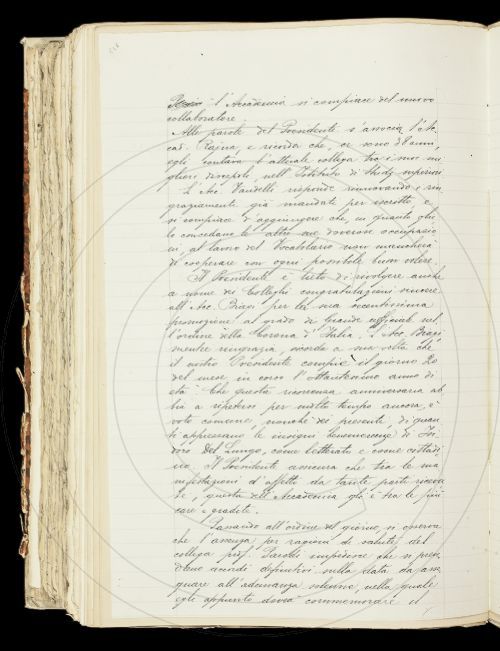 l'Accademia si compiace del nuovo
collaboratore.
Alle parole del Presidente s'associa l'Ac-
cad. Rajna, e ricorda che, or sono 28 anni,
egli contava l'attuale collega tra i suoi mi-
gliori discepoli, nell'Istituto di Studj superiori
L'Acc. Vandelli risponde rinnovando i rin-
graziamenti già mandati per iscritto, e
si compiace d'aggiungere che, in quanto gli
lo concedano le altre sue doverose occupazio-
ni, al lavoro del Vocabolario non mancherà
di cooperare con ogni possibile buon volere.
Il Presidente è lieto di rivolgere anche
a nome dei Colleghi congratulazioni sincere
all'Acc. Biagi per la sua recentissima
promozione al grado di Grande ufficiale nel-
l'ordine della Corona d'Italia. L'Acc. Biagi
mentre ringrazia, ricorda a sua volta che
il nostro Presidente compié il giorno 20
del mese in corso l'ottantesimo anno di
età. Che questa ricorrenza anniversaria ab-
bia a ripetersi per molto tempo ancora, è
voto comune, nonché dei presenti, di quan-
ti apprezzano le insigni benemerenze di Isi-
doro Del Lungo, come letterato e come cittadi-
no. Il Presidente assicura che tra le ma-
nifestazioni d'affetto da tante parti ricevu-
te, questa dell'Accademia gli è tra le più
care e gradite.
Passando all'ordine del giorno, si osserva
che l'assenza per ragioni di salute del
collega prof. Parodi impedisce che si pren-
dano accordi definitivi sulla data da asse-
gnare all'adunanza solenne, nella quale
egli appunto dovrà commemorare il